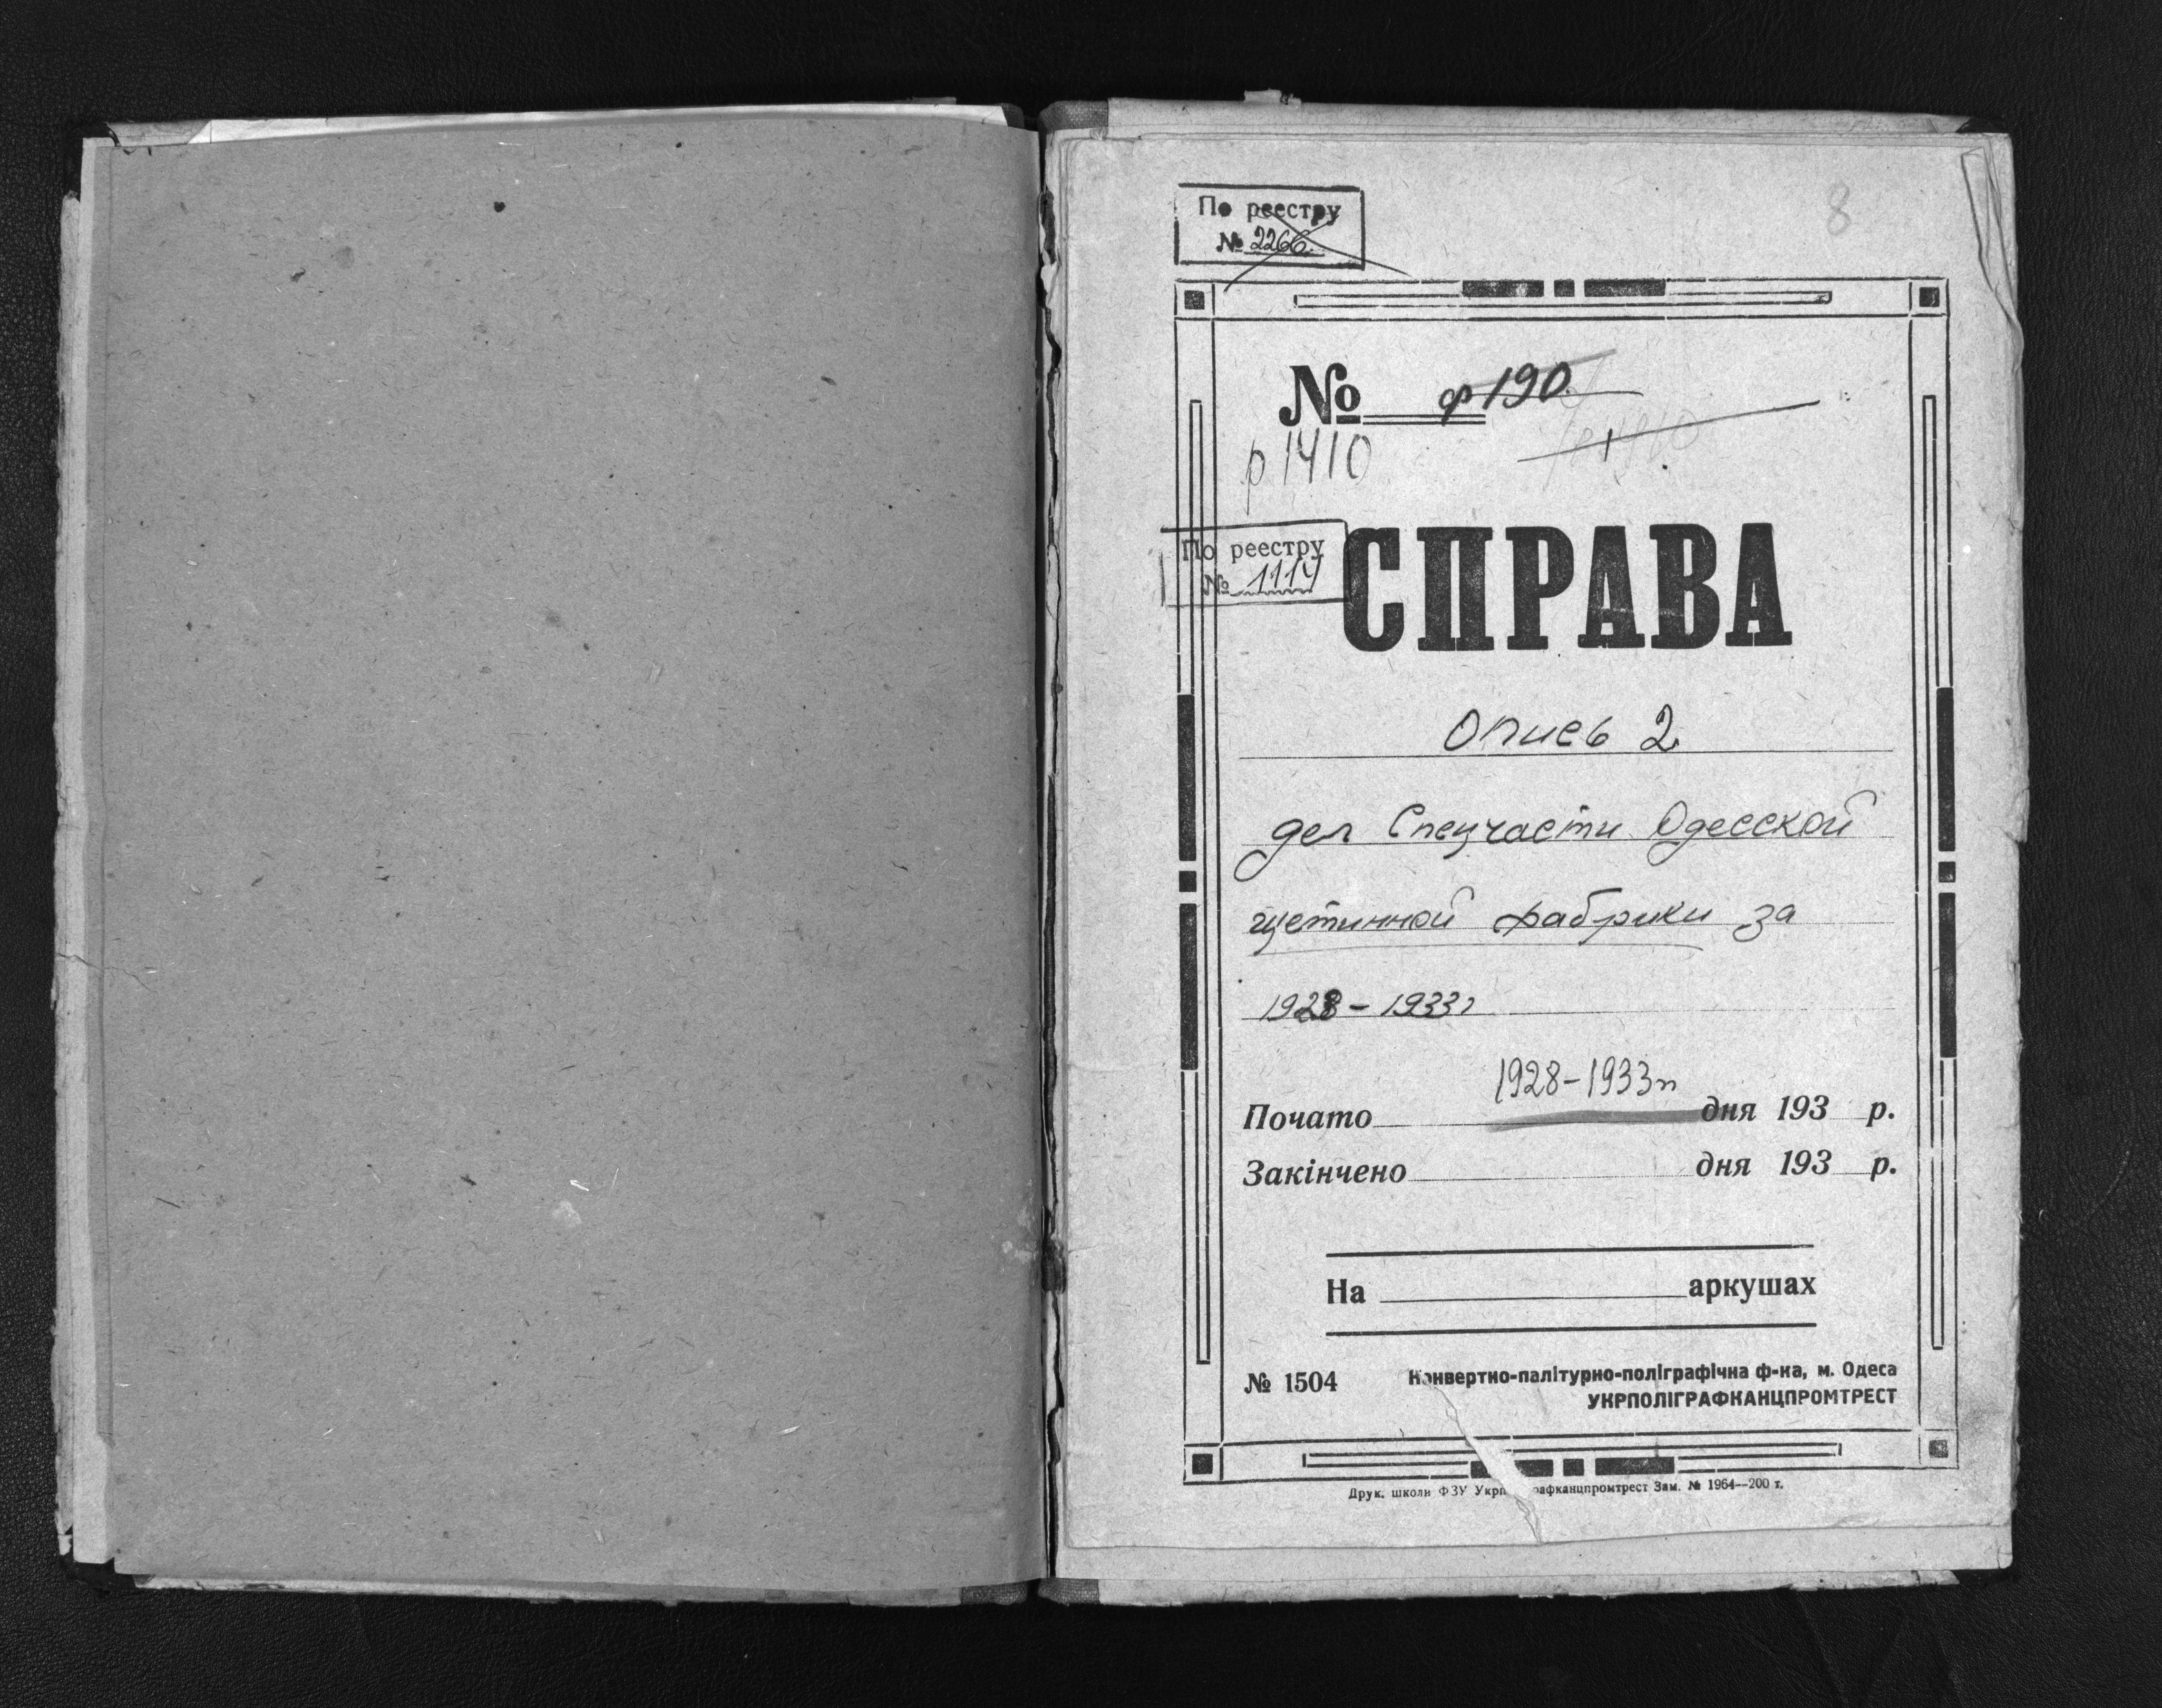 8
По реестру
№ 2266.
№ ф 190.
р 1410
По реестру
№ 1114
СПРАВА
Опись 2
дел Спецчасти Одесской
щетинной фабрики за
1928 – 1933 г
1928 – 1933 гг
Почато дня 193 р.
Закінчено дня 193 р.
На аркушах
№ 1504
Конвертно-палітурно-поліграфічна ф-ка, м. Одеса
УКРПОЛІГРАФКАНЦПРОМТРЕСТ
Друк. школи ФЗУ Укрп рафканцпромтрест Зам. № 1964—200 т.